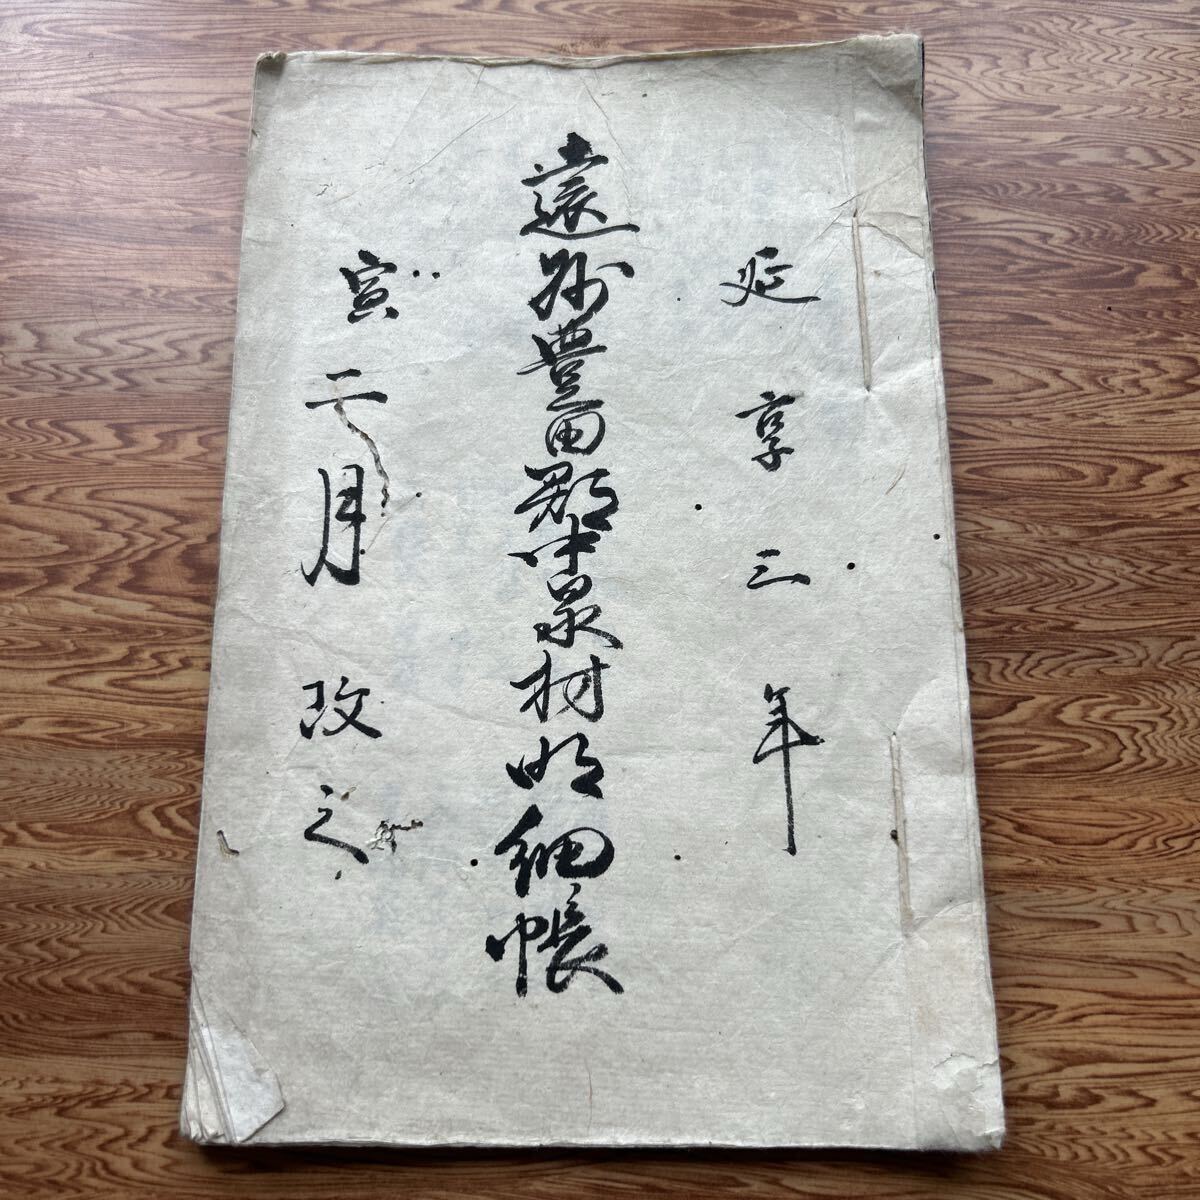 延享三年
遠州豊田郡中泉村明細帳
寅二月改之